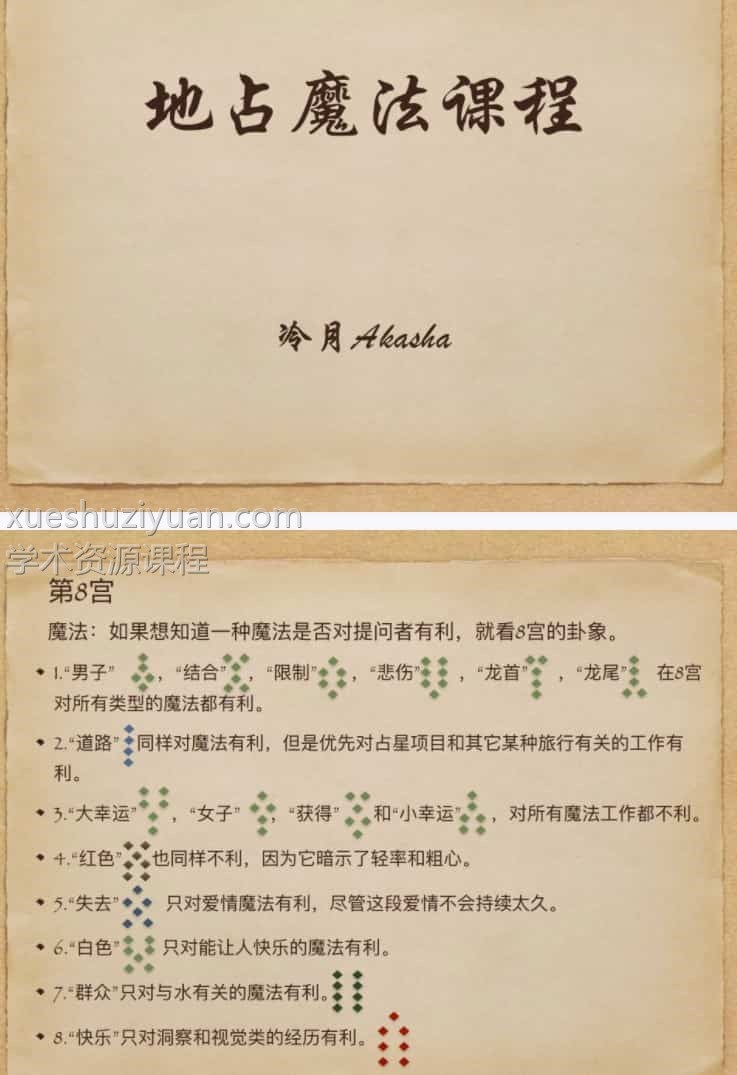 地占魔法课程
冷月Akasha
xueshuziyuan.com
学术资源课程
第8宫
魔法：如果想知道一种魔法是否对提问者有利，就看8宫的卦象。
1.“男子”，“结合”，“限制”，“悲伤”，“龙首”，“龙尾” 在8宫
对所有类型的魔法都有利。
2.“道路”同样对魔法有利，但是优先对占星项目和其它某种旅行有关的工作有
利。
3.“大幸运”，“女子”，“获得”和“小幸运”，对所有魔法工作都不利。
4.“红色”也同样不利，因为它暗示了轻率和粗心。
5.“失去” 只对爱情魔法有利，尽管这段爱情不会持续太久。
6.“白色” 只对能让人快乐的魔法有利。
7.“群众”只对与水有关的魔法有利。
8.“快乐”只对洞察和视觉类的经历有利。